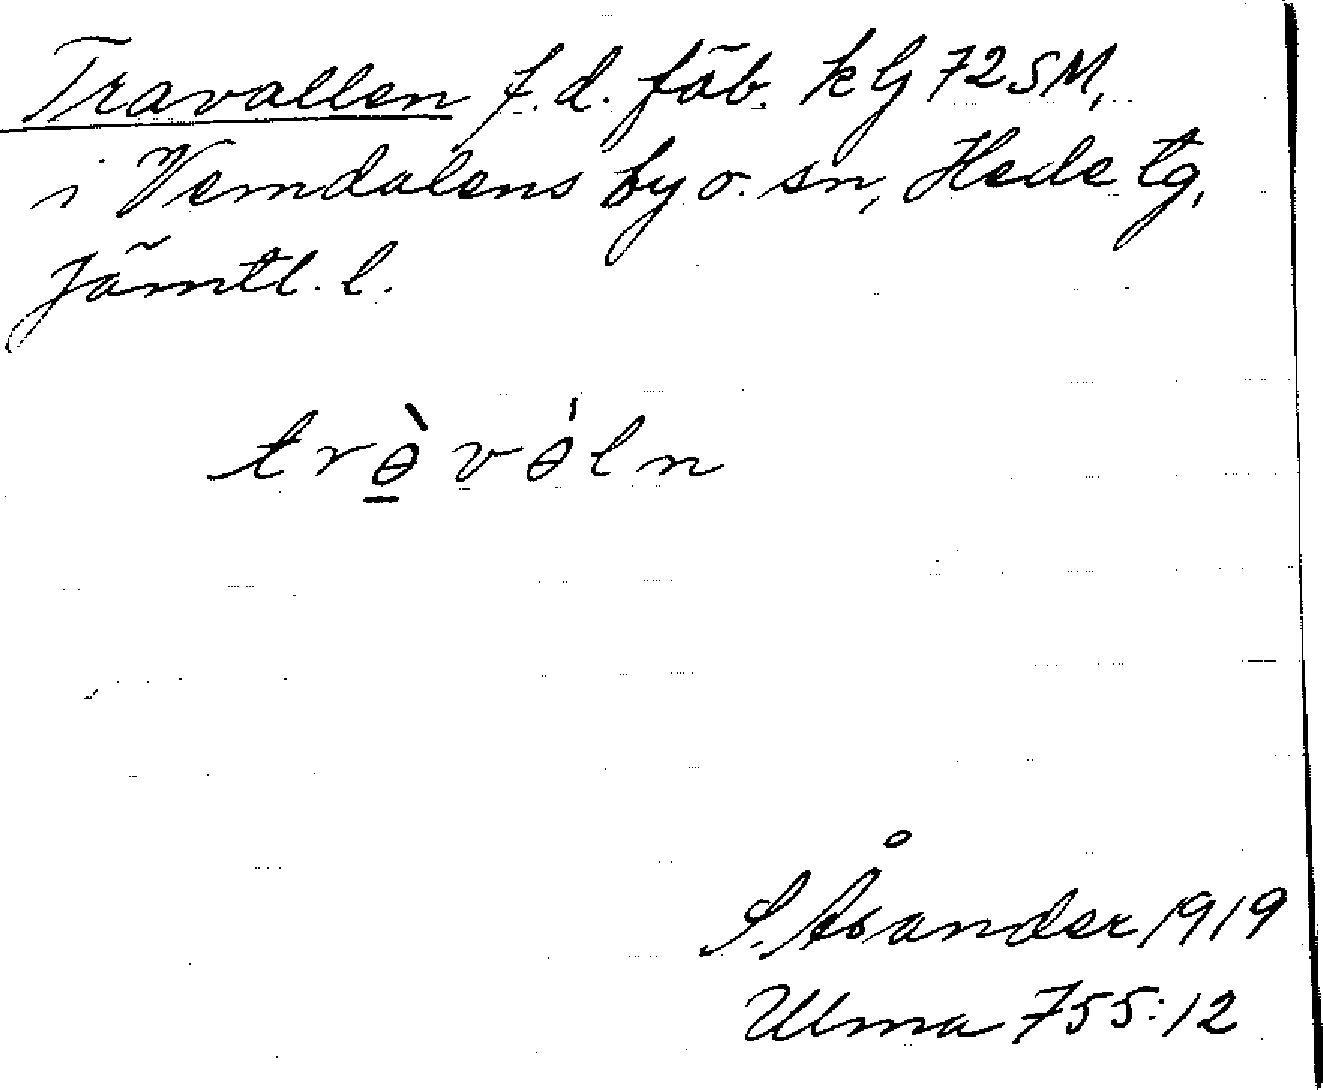 Travallen f.d. fäb. kG 72 SM,
i Vemdalens by o. sn, Hede tg,
Jämtl. l.
trɵ̠̀vɵ́ln
S. Åsander 1919
Ulma 755:12